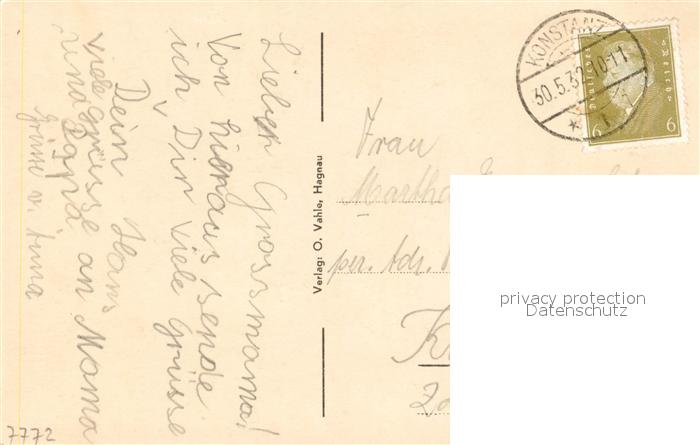 Lieber Grossmama!
Von hieraus sende
ich Dir viele Grüsse
Dein Hans
viele Grüsse an Mama
und Papa
Grüsse v. Anna
7772
Verlag: O. Vahle, Hagnau
Frau
Martha
per. Adr.
KONSTANZ
30.5.32 10-11
* 1
Deutsches Reich
6 6
privacy protection
Datenschutz